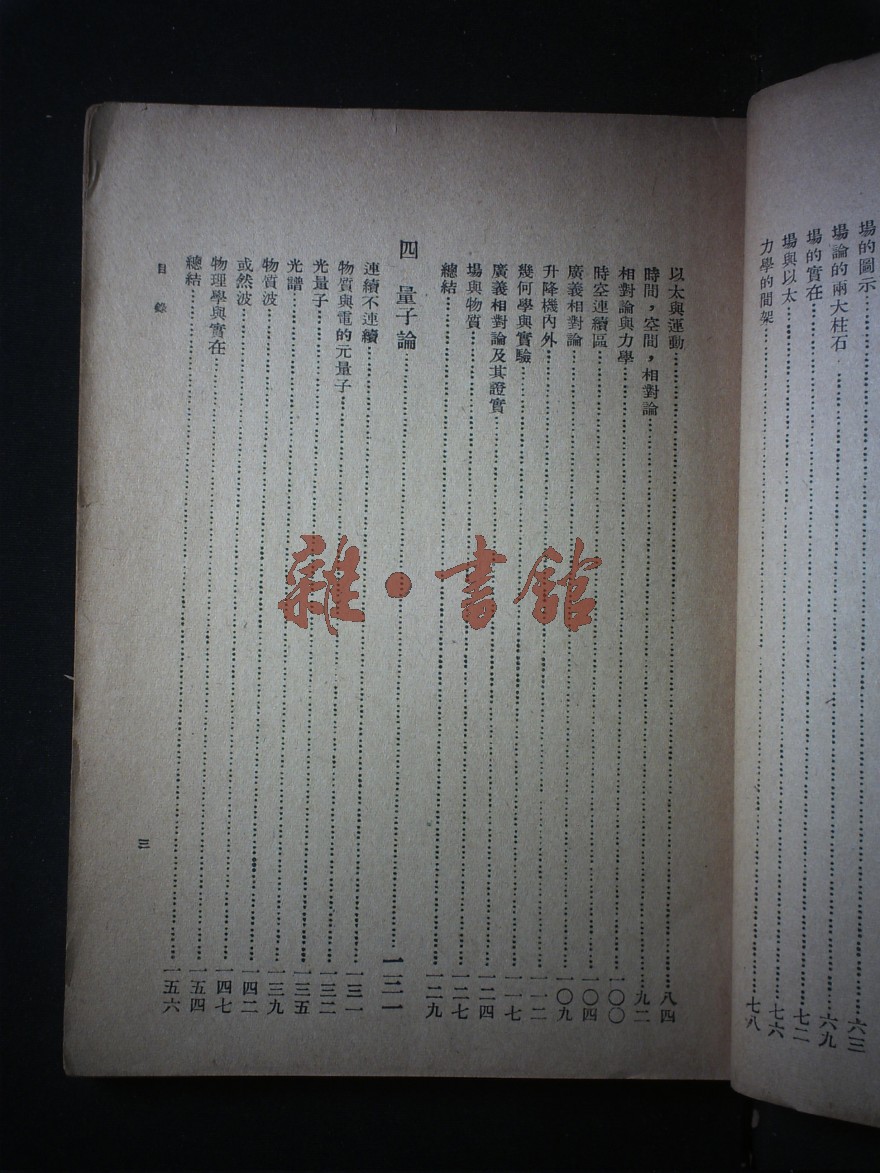 場的圖示……六三
場論的兩大柱石……六九
場的實在……七二
場與以太……七六
力學的間架……七八
以太與運動……八四
時間，空間，相對論……九二
相對論與力學……一〇〇
時空連續區……一〇四
廣義相對論……一〇九
升降機內外……一一二
幾何學與實驗……一一七
廣義相對論及其證實……一二四
場與物質……一二七
總結……一二九
四 量子論……一三一
連續不連續……一三一
物質與電的元量子……一三二
光量子……一三五
光譜……一三九
物質波……一四二
或然波……一四七
物理學與實在……一五四
總結……一五六
目錄
三
雜·書館